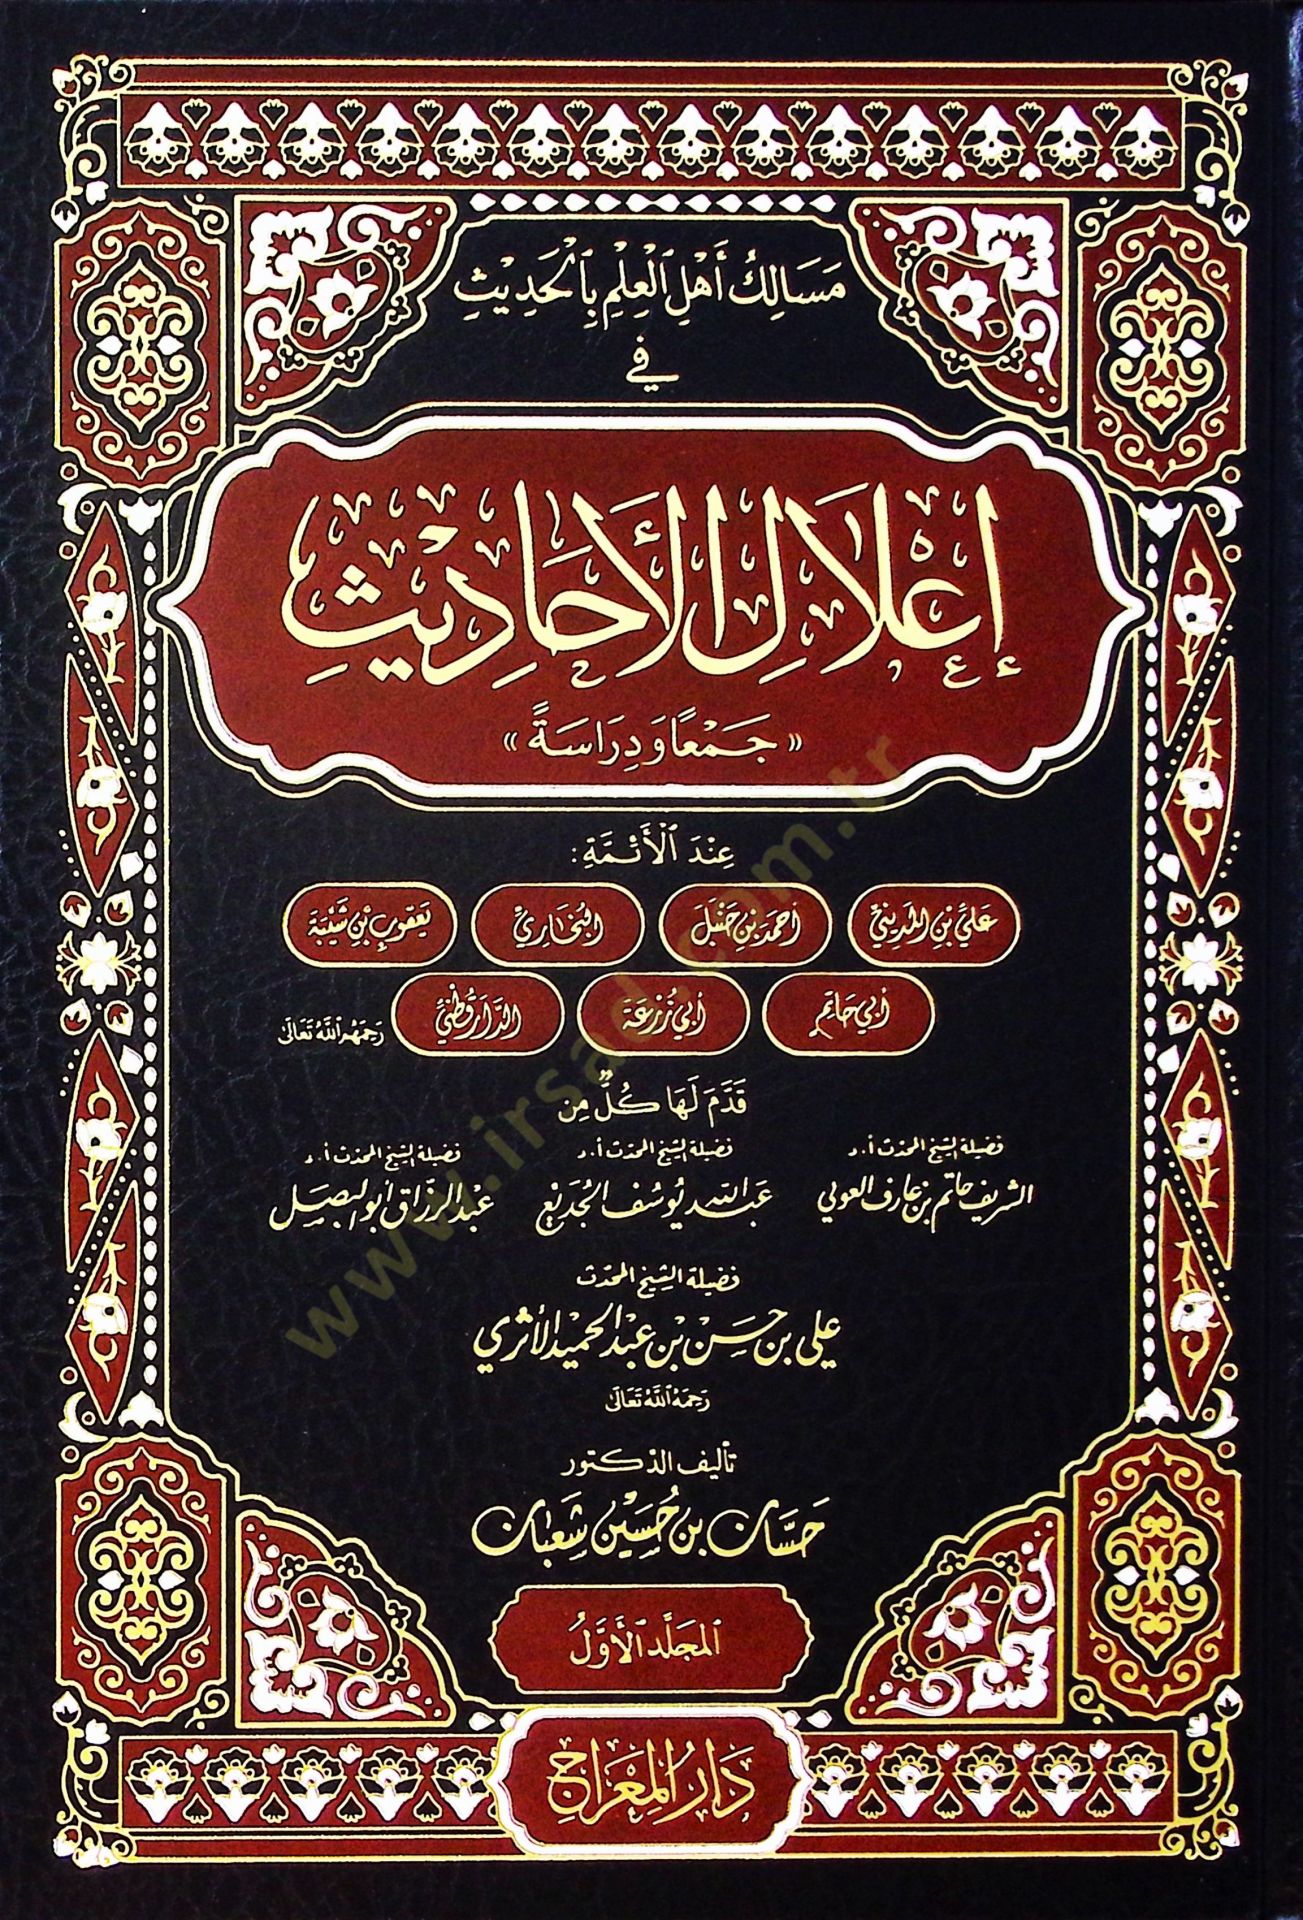 مَسَالِكُ أَهْلِ الْعِلْمِ بِالْحَدِيْثِ
فِي
إِعْلَالِ الْأَحَادِيْثِ
«جَمْعًا وَدِرَاسَةً»
عِنْدَ الْأَئِمَّةِ:
عَلِيِّ بْنِ الْمَدِيْنِيِّ أَحْمَدَ بْنِ حَنْبَلَ الْبُخَارِيِّ يَعْقُوبَ بْنِ شَيْبَةَ
أَبِي حَاتِمٍ أَبِي زُرْعَةَ الدَّارَقُطْنِيِّ رَحِمَهُمُ اللَّهُ تَعَالَى
قَدَّمَ لَهَا كُلٌّ مِن
فضيلة الشيخ المحدث أ.د فضيلة الشيخ المحدث أ.د فضيلة الشيخ المحدث أ.د
الشريف حاتم بن عارف العوني عبد الله يوسف الجديع عبد الرزاق أبو البصل
فضيلة الشيخ المحدث
علي بن حسن بن عبد الحميد الأثري
رَحِمَهُ اللَّهُ تَعَالَى
تأليف الدكتور
حَسَّان بن حُسَيْن شَعْبَان
المجَلّد الأَوَّلُ
دَارُ المِعْرَاج
www.irsad.com.tr